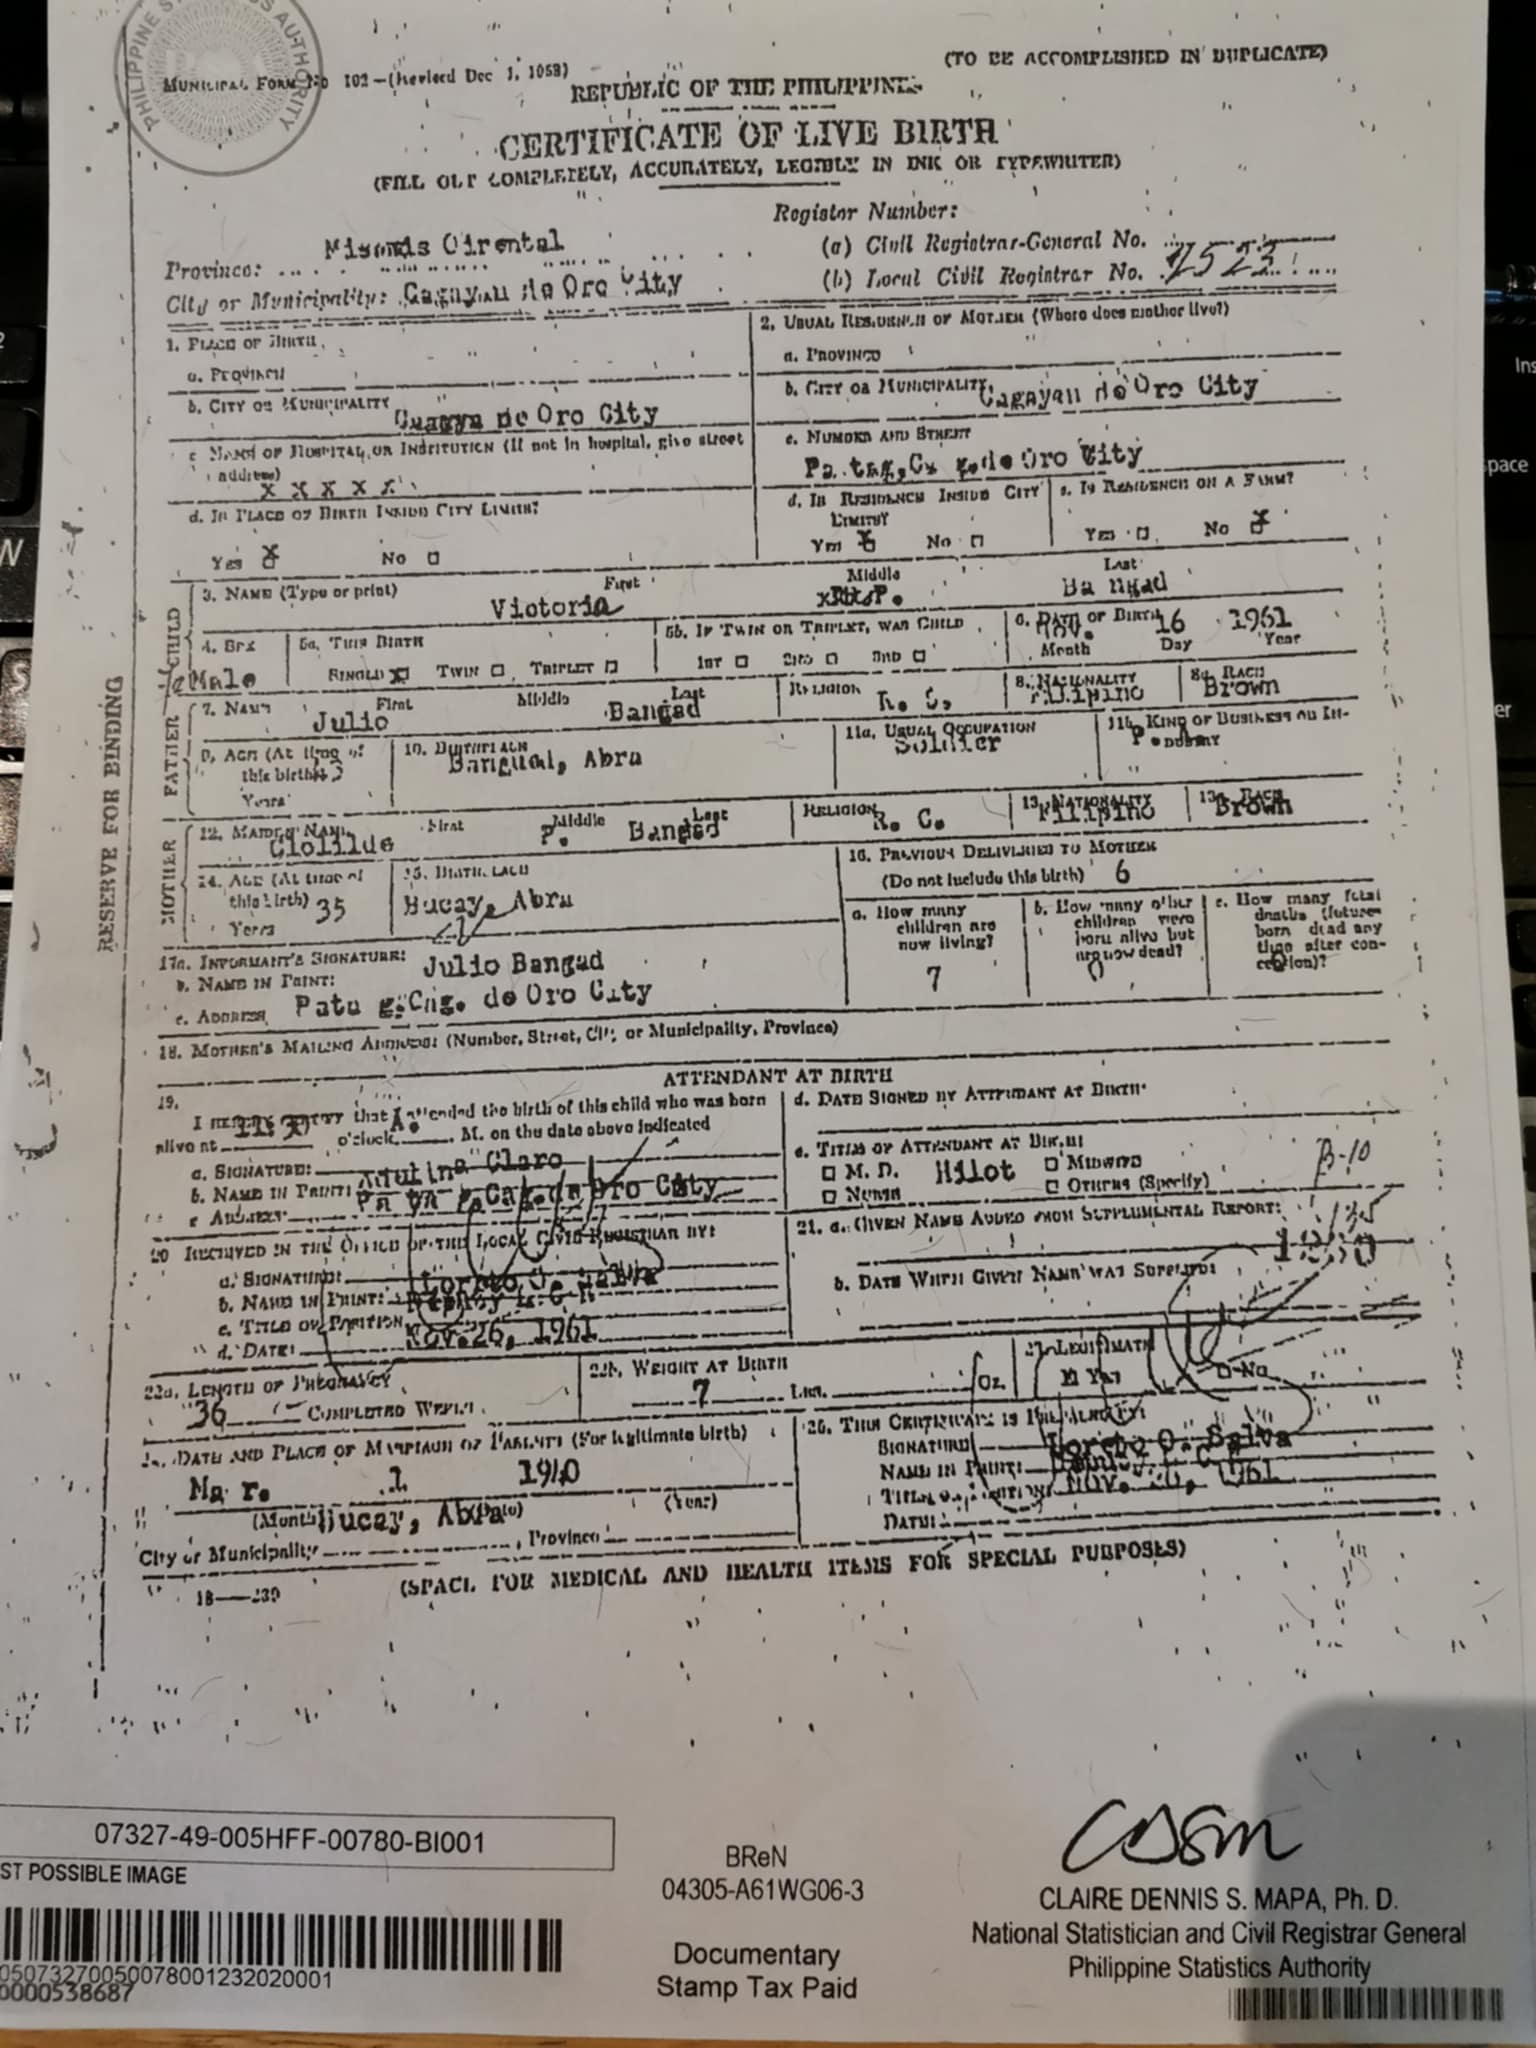 PHILIPPINE STATISTICS AUTHORITY
MUNICIPAL FORM No 102—(Revised Dec 1, 1958)
(TO BE ACCOMPLISHED IN DUPLICATE)
REPUBLIC OF THE PHILIPPINES
CERTIFICATE OF LIVE BIRTH
(FILL OUT COMPLETELY, ACCURATELY, LEGIBLY IN INK OR TYPEWRITER)
Register Number:
Province: Misamis Oirental
(a) Civil Registrar-General No.
City or Municipality: Cagayan de Oro City
(b) Local Civil Registrar No. 2523
1. PLACE OF BIRTH
2. USUAL RESIDENCE OF MOTHER (Where does mother live?)
a. PROVINCE
a. PROVINCE
b. CITY OR MUNICIPALITY de Oro City
b. CITY OR MUNICIPALITY Cagayan de Oro City
c NAME OF HOSPITAL OR INSTITUTION (If not in hospital, give street address)
x x x x x
c. NUMBER AND STREET
de Oro City
d. IS PLACE OF BIRTH INSIDE CITY LIMITS?
Yes x No
d. IS RESIDENCE INSIDE CITY LIMITS?
Yes x No
e. IS RESIDENCE ON A FARM?
Yes No x
RESERVE FOR BINDING
CHILD
3. NAME (Type or print) First Middle Last
Victoria P. Bangad
4. SEX
Male
5a. THIS BIRTH
SINGLE x TWIN TRIPLET
5b. IF TWIN OR TRIPLET, WAS CHILD
1ST 2ND 3RD
6. DATE OF BIRTH
Nov. 16 1961
Month Day Year
FATHER
7. NAME First Middle Last
Julio Bangad
RELIGION R. C.
8. NATIONALITY Filipino
8a. RACE Brown
9. AGE (At time of this birth)
Years
10. BIRTHPLACE
Abra
11a. USUAL OCCUPATION
Soldier
11b. KIND OF BUSINESS OR INDUSTRY
P. A.
MOTHER
12. MAIDEN NAME First Middle Last
P. Bangad
RELIGION R. C.
13. NATIONALITY Filipino
13a. RACE Brown
14. AGE (At time of this birth) 35
Years
15. BIRTHPLACE
Bucay, Abra
16. PREVIOUS DELIVERIES TO MOTHER
(Do not include this birth) 6
a. How many children are now living?
7
b. How many other children were born alive but are now dead?
0
c. How many fetal deaths (fetuses born dead any time after conception)?
0
17a. INFORMANT'S SIGNATURE:
b. NAME IN PRINT: Julio Bangad
c. ADDRESS de Oro City
18. MOTHER'S MAILING ADDRESS: (Number, Street, City or Municipality, Province)
ATTENDANT AT BIRTH
19.
I HEREBY CERTIFY that I attended the birth of this child who was born
alive at 11:30 o'clock A. M. on the date above indicated
a. SIGNATURE:
b. NAME IN PRINT: Claro
c ADDRESS: de Oro City
d. DATE SIGNED BY ATTENDANT AT BIRTH
e. TITLE OF ATTENDANT AT BIRTH
M. D. Hilot MIDWIFE
NURSE OTHERS (Specify)
20 RECEIVED IN THE OFFICE OF THE LOCAL CIVIL REGISTRAR BY:
a. SIGNATURE:
b. NAME IN PRINT: Loreto O. Salva
c. TITLE OR POSITION
d. DATE: Nov. 26, 1961
21. a. GIVEN NAME ADDED FROM SUPPLEMENTAL REPORT:
b. DATE WHEN GIVEN NAME WAS SUPPLIED:
22a. LENGTH OF PREGNANCY
36 COMPLETED WEEKS
22b. WEIGHT AT BIRTH
7 LBS. OZ.
LEGITIMATE
Yes No
DATE AND PLACE OF MARRIAGE OF PARENTS (For legitimate birth)
Mar. 1 1940
(Month) (Date) (Year)
Bucay,
City or Municipality , Province
THIS CERTIFICATE IS PREPARED BY:
SIGNATURE
NAME IN PRINT: Loreto O. Salva
TITLE OR POSITION:
DATE: 1961
(SPACE FOR MEDICAL AND HEALTH ITEMS FOR SPECIAL PURPOSES)
07327-49-005HFF-00780-BI001
ST POSSIBLE IMAGE
BReN
04305-A61WG06-3
Documentary
Stamp Tax Paid
CLAIRE DENNIS S. MAPA, Ph. D.
National Statistician and Civil Registrar General
Philippine Statistics Authority
05073270050078001232020001
0000538687